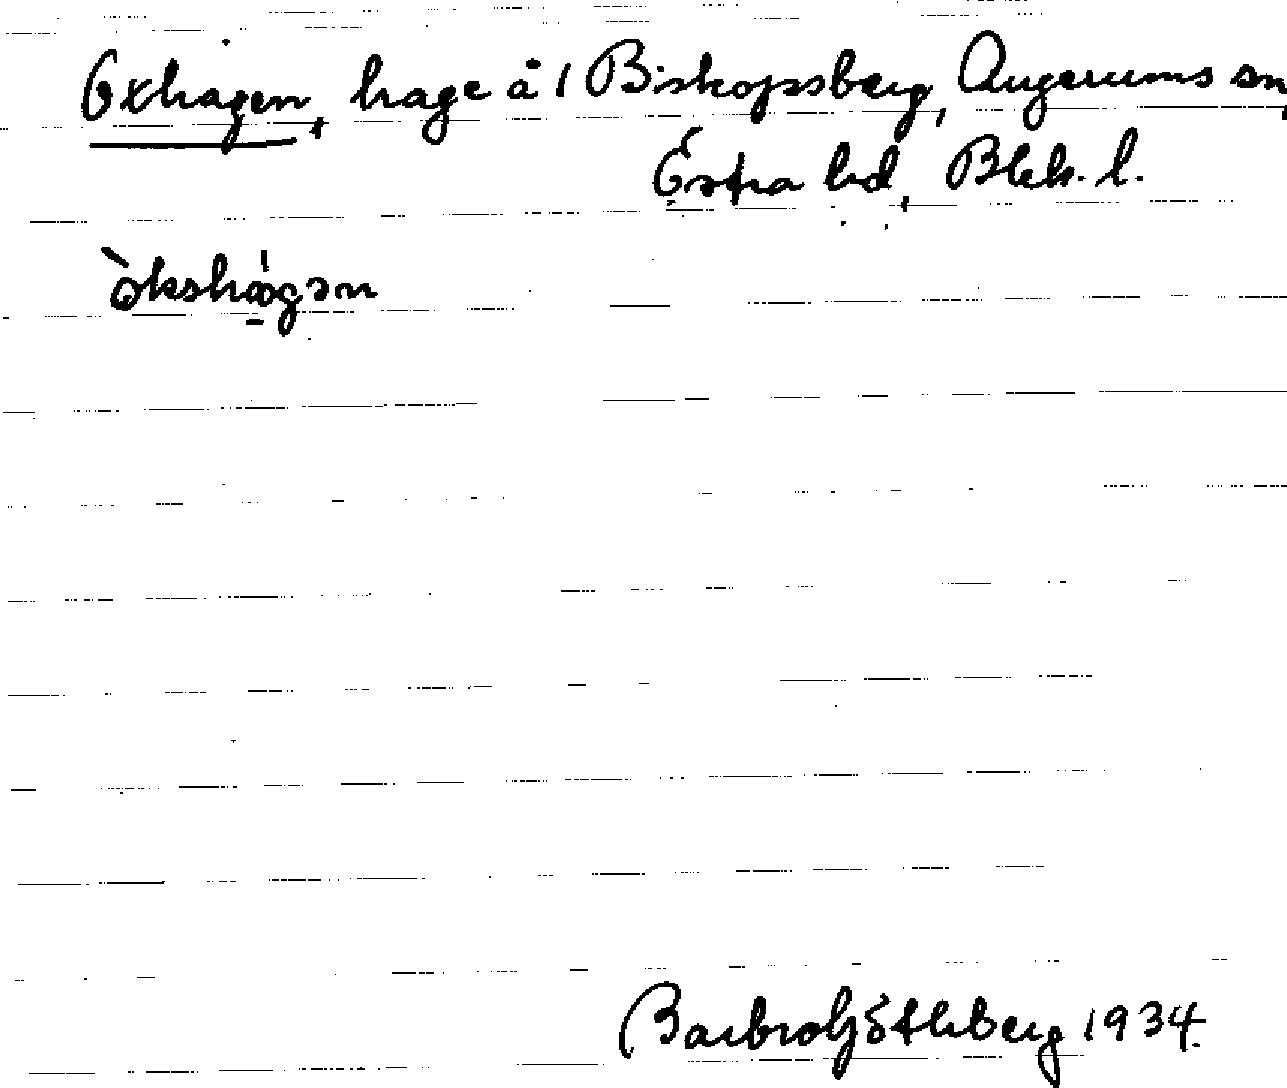 Oxhagen, hage å 1 Biskopsberg, Augerums sn,
Östra hd, Blek. l.
òkshágən
Barbro Götlberg 1934.